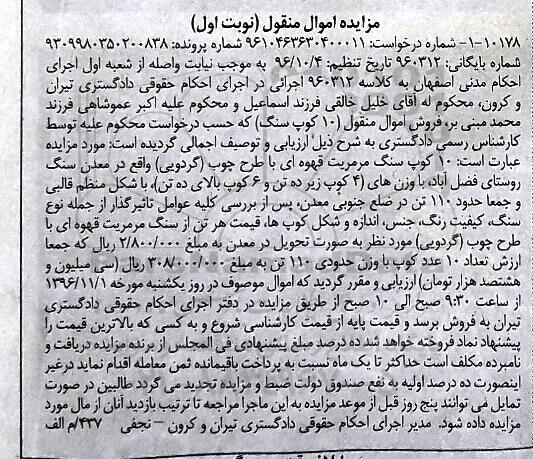 مزایده اموال منقول (نوبت اول)
۱-۱۰۱۷۸- شماره درخواست: ۹۶۱۰۴۶۳۶۳۰۴۰۰۰۱۱ شماره پرونده: ۹۳۰۹۹۸۰۳۵۰۲۰۰۸۳۸
شماره بایگانی: ۹۶۰۳۱۲ تاریخ تنظیم: ۹۶/۱۰/۴ به موجب نیابت واصله از شعبه اول اجرای
احکام مدنی اصفهان به کلاسه ۹۶۰۳۱۲ اجرائی در اجرای احکام حقوقی دادگستری تیران
و کرون، محکوم له آقای خلیل خالقی فرزند اسماعیل و محکوم علیه اکبر عموشاهی فرزند
محمد مبنی بر، فروش اموال منقول (۱۰ کوپ سنگ) که حسب درخواست محکوم علیه توسط
کارشناس رسمی دادگستری به شرح ذیل ارزیابی و توصیف اجمالی گردیده است: مورد مزایده
عبارت است: ۱۰ کوپ سنگ مرمریت قهوه ای با طرح چوب (گردویی) واقع در معدن سنگ
روستای فضل آباد، با وزن های (۴ کوپ زیر ده تن و ۶ کوپ بالای ده تن)، با شکل منظم قالبی
و جمعا حدود ۱۱۰ تن در ضلع جنوبی معدن، پس از بررسی کلیه عوامل تاثیرگذار از جمله نوع
سنگ، کیفیت رنگ، جنس، اندازه و شکل کوپ ها، قیمت هر تن از سنگ مرمریت قهوه ای با
طرح چوب (گردویی) مورد نظر به صورت تحویل در معدن به مبلغ ۲/۸۰۰/۰۰۰ ریال که جمعا
ارزش تعداد ۱۰ عدد کوپ با وزن حدودی ۱۱۰ تن به مبلغ ۳۰۸/۰۰۰/۰۰۰ ریال (سی میلیون و
هشتصد هزار تومان) ارزیابی و مقرر گردید که اموال موصوف در روز یکشنبه مورخه ۱۳۹۶/۱۱/۱
از ساعت ۹:۳۰ صبح الی ۱۰ صبح از طریق مزایده در دفتر اجرای احکام حقوقی دادگستری
تیران به فروش برسد و قیمت پایه از قیمت کارشناسی شروع و به کسی که بالاترین قیمت را
پیشنهاد نماد فروخته خواهد شد ده درصد مبلغ پیشنهادی فی المجلس از برنده مزایده دریافت و
نامبرده مکلف است حداکثر تا یک ماه نسبت به پرداخت باقیمانده ثمن معامله اقدام نماید در غیر
اینصورت ده درصد اولیه به نفع صندوق دولت ضبط و مزایده تجدید می گردد طالبین در صورت
تمایل می توانند پنج روز قبل از موعد مزایده به این ماجرا مراجعه تا ترتیب بازدید آنان از مال مورد
مزایده داده شود. مدیر اجرای احکام حقوقی دادگستری تیران و کرون – نجفی ۴۳۷/م الف